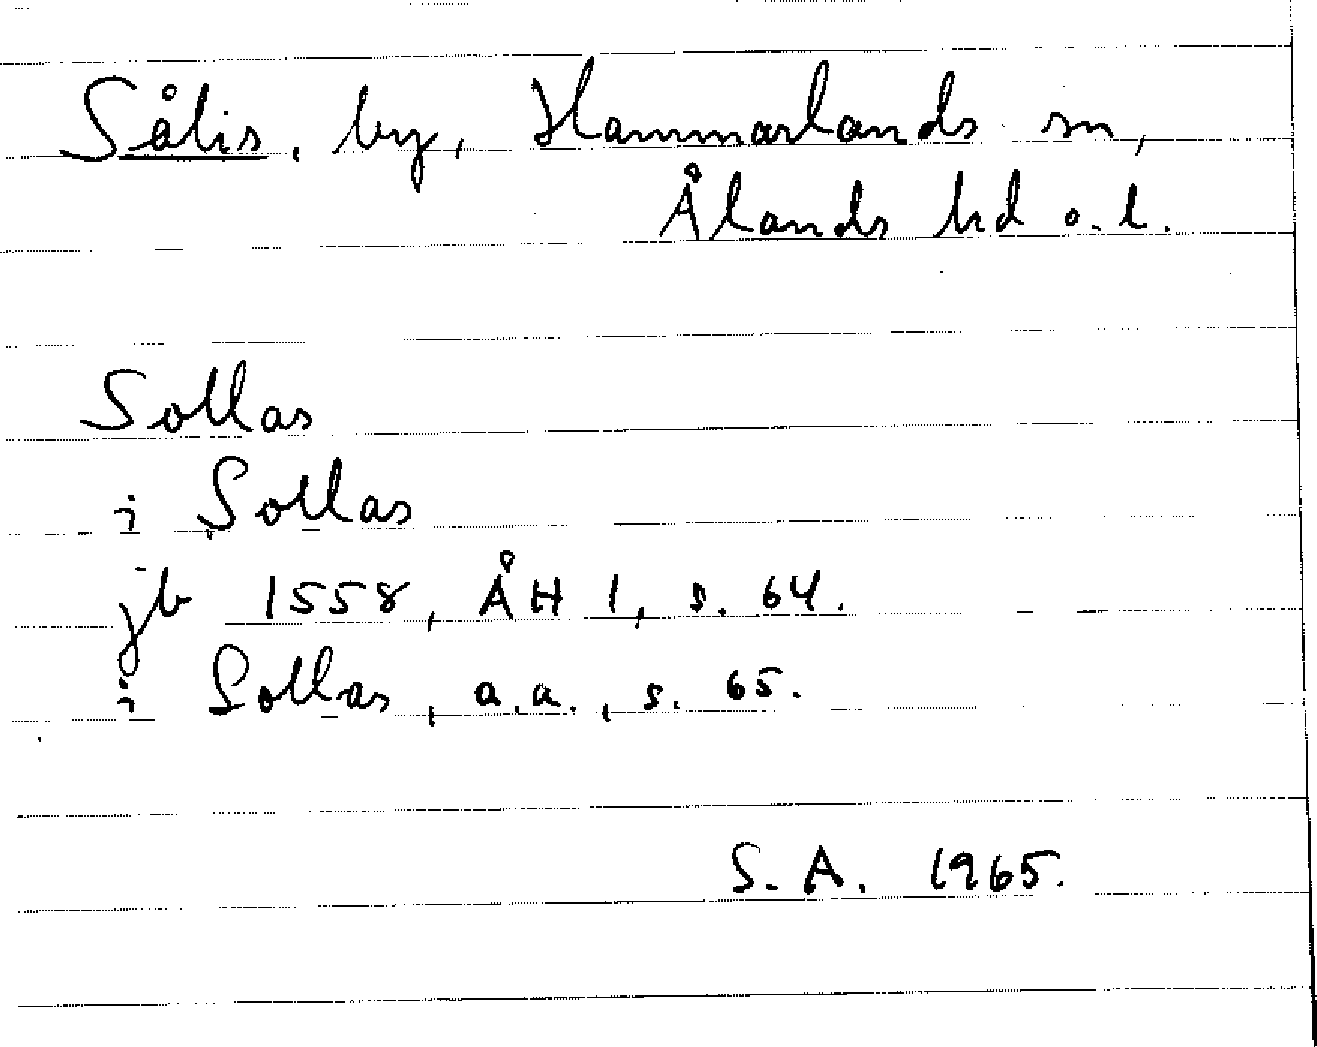 Sålis, by, Hammarlands sn,
Ålands hd o. l.
Sollas
i Sollas
jb 1558, ÅH 1, s. 64.
i Sollas, a.a., s. 65.
S. A. 1965.